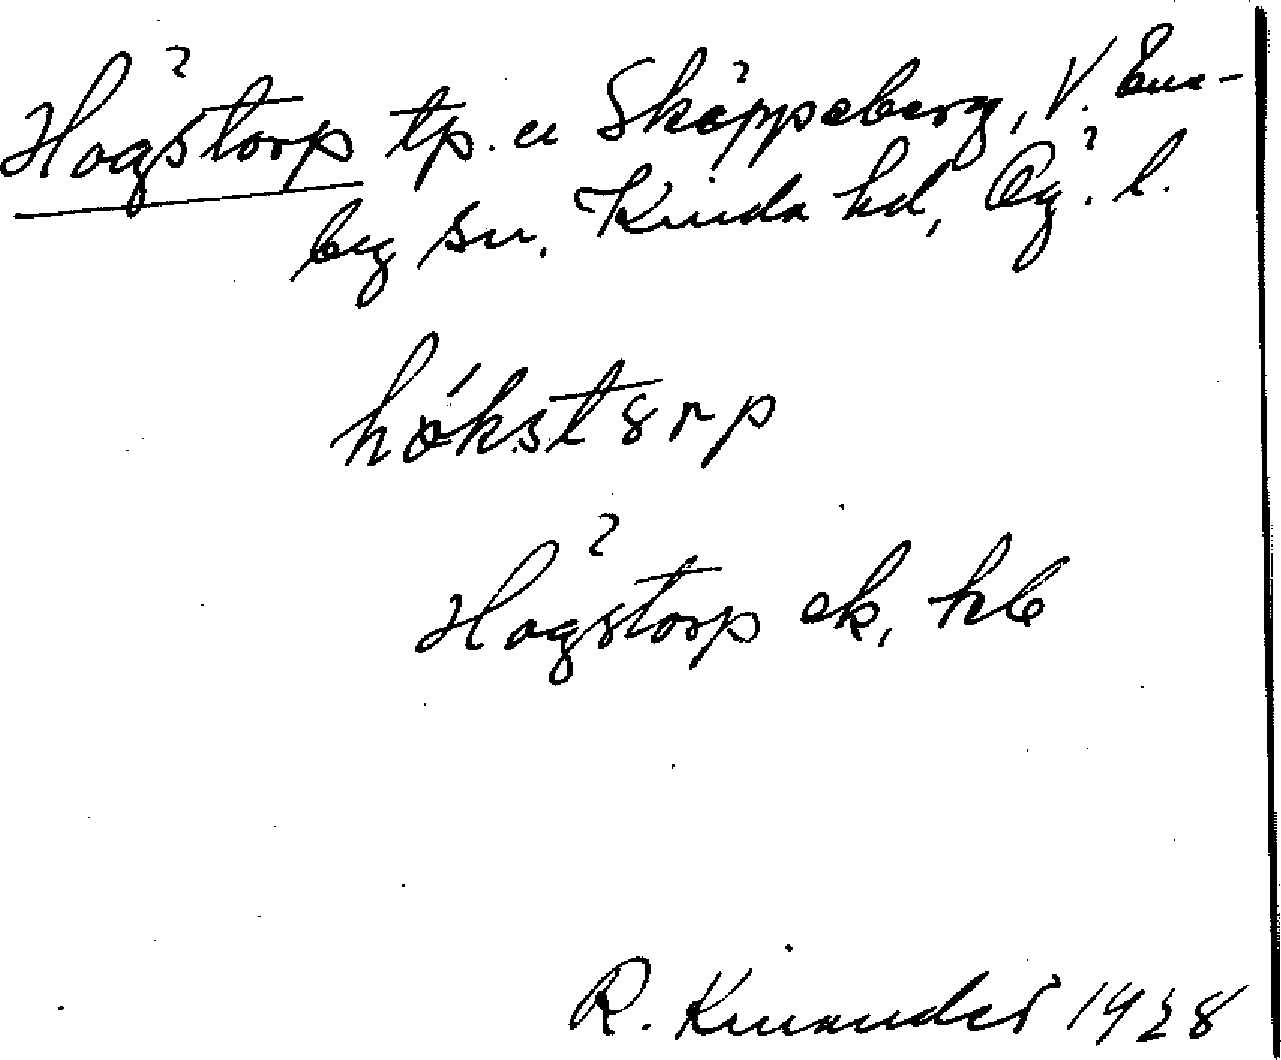 Högstorp tp. u Sköppeberg, V. Ene-
by sn. Kinda hd, Ög. l.
hökstorp
Högstorp ek, hb
R. Kinander 1928